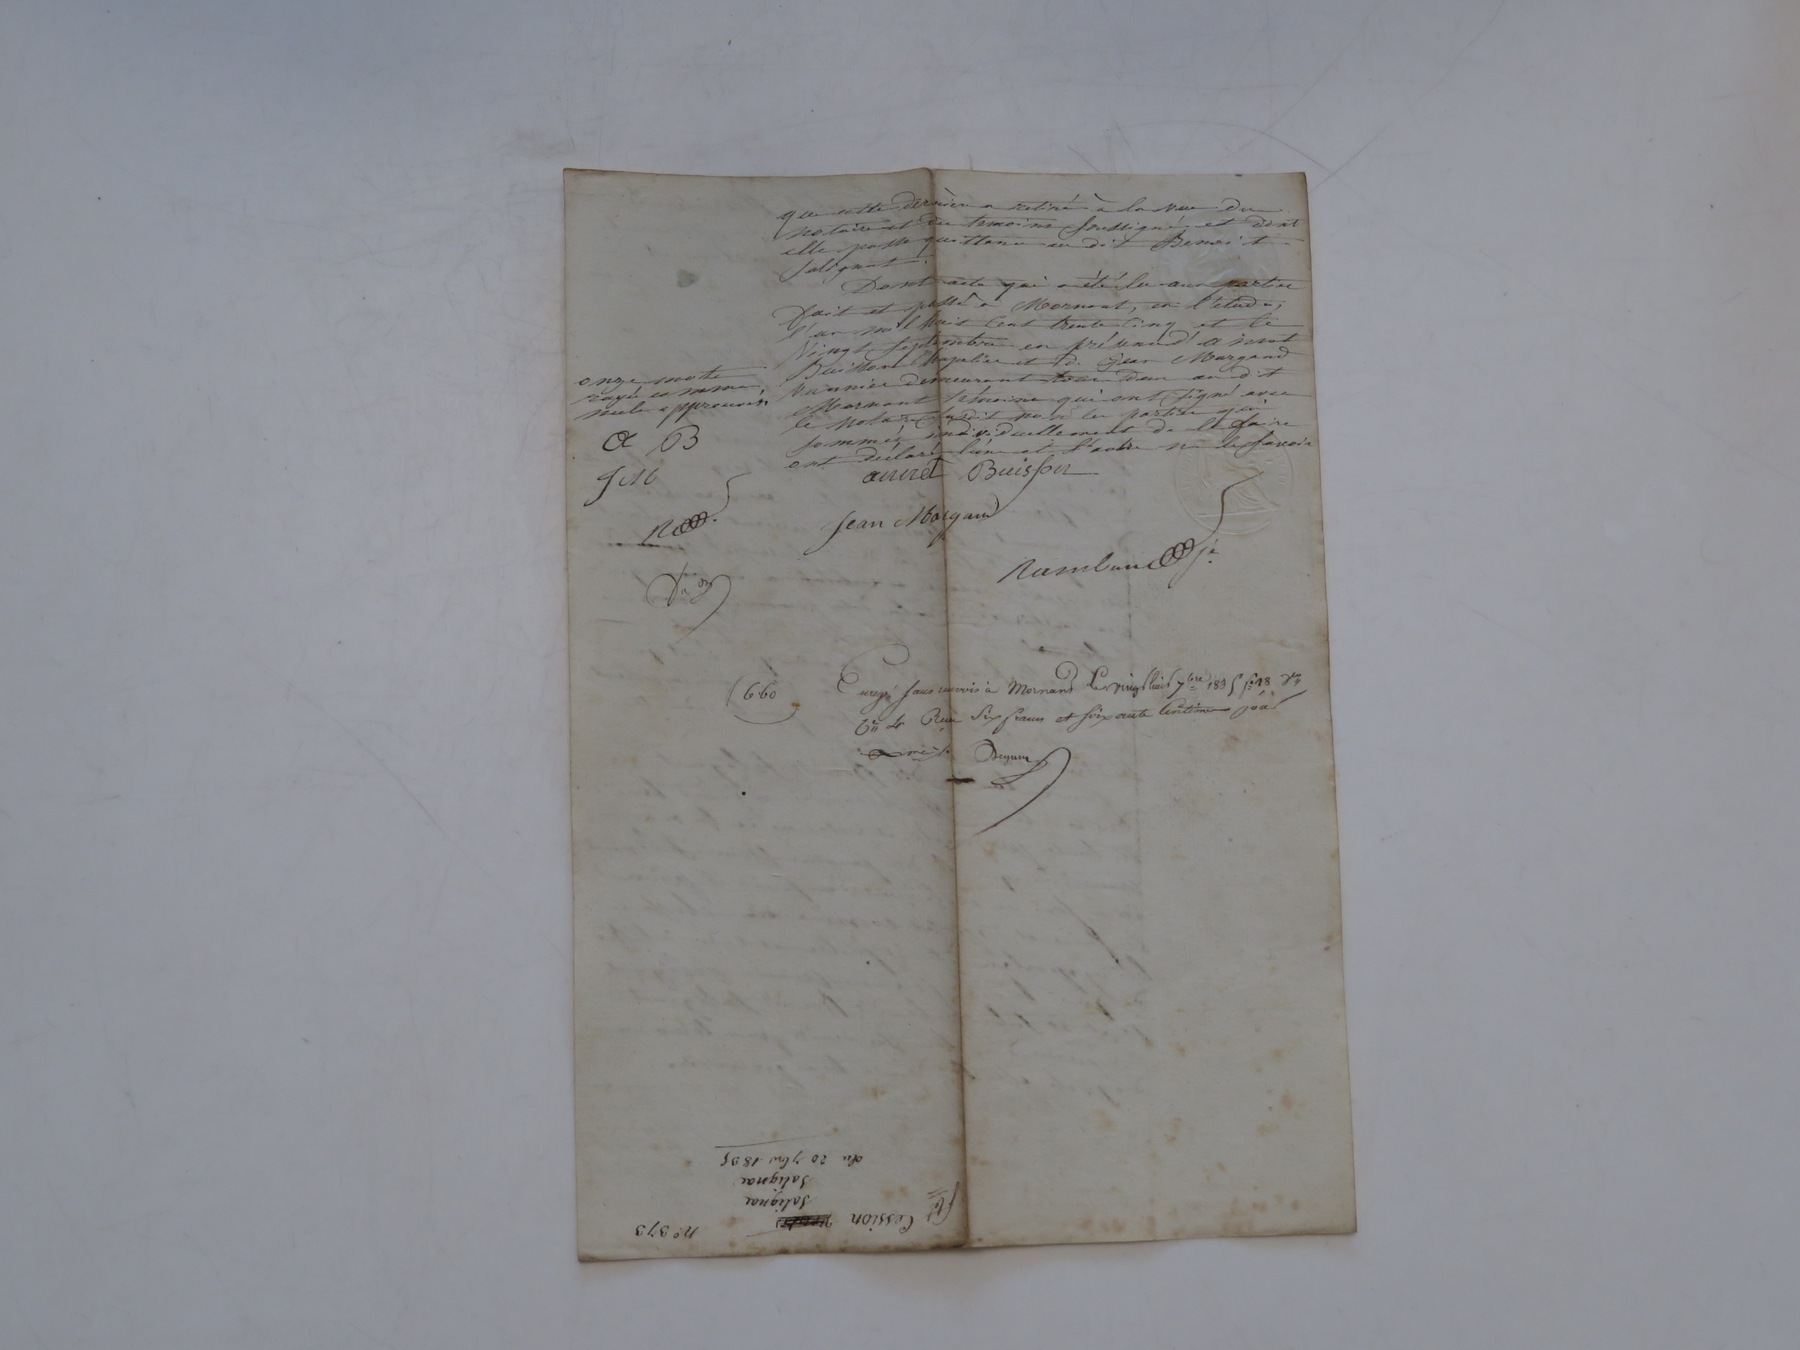 que cette dernière a retiré à la vue du
notaire et des temoins soussignés, et dont
elle passe quittance au dit Benoit
Salignat.
Dont acte qui a été lu aux parties
fait et passé à Mornant, en l'etude,
l'an mil huit cent trente cinq et le
vingt septembre en présence d'
Buisson chapelier et de Jean Margand
vannier demeurant tous deux au dit
Mornant témoins qui ont signé avec
le notaire les parties qui
sommées individuellement de le faire
ont déclaré l'une et l'autre ne le savoir
onze mots
rayés comme
nuls approuvés
A B
JM
Buisson
Jean Margand
6-60
Enregé sans renvoi à Mornant le vingt huit 7bre 1835 fo 18
Cn 4 Reçu six francs et soixante centimes
n° 373
Cession
Salignac
Salignac
du 20 7bre 1835